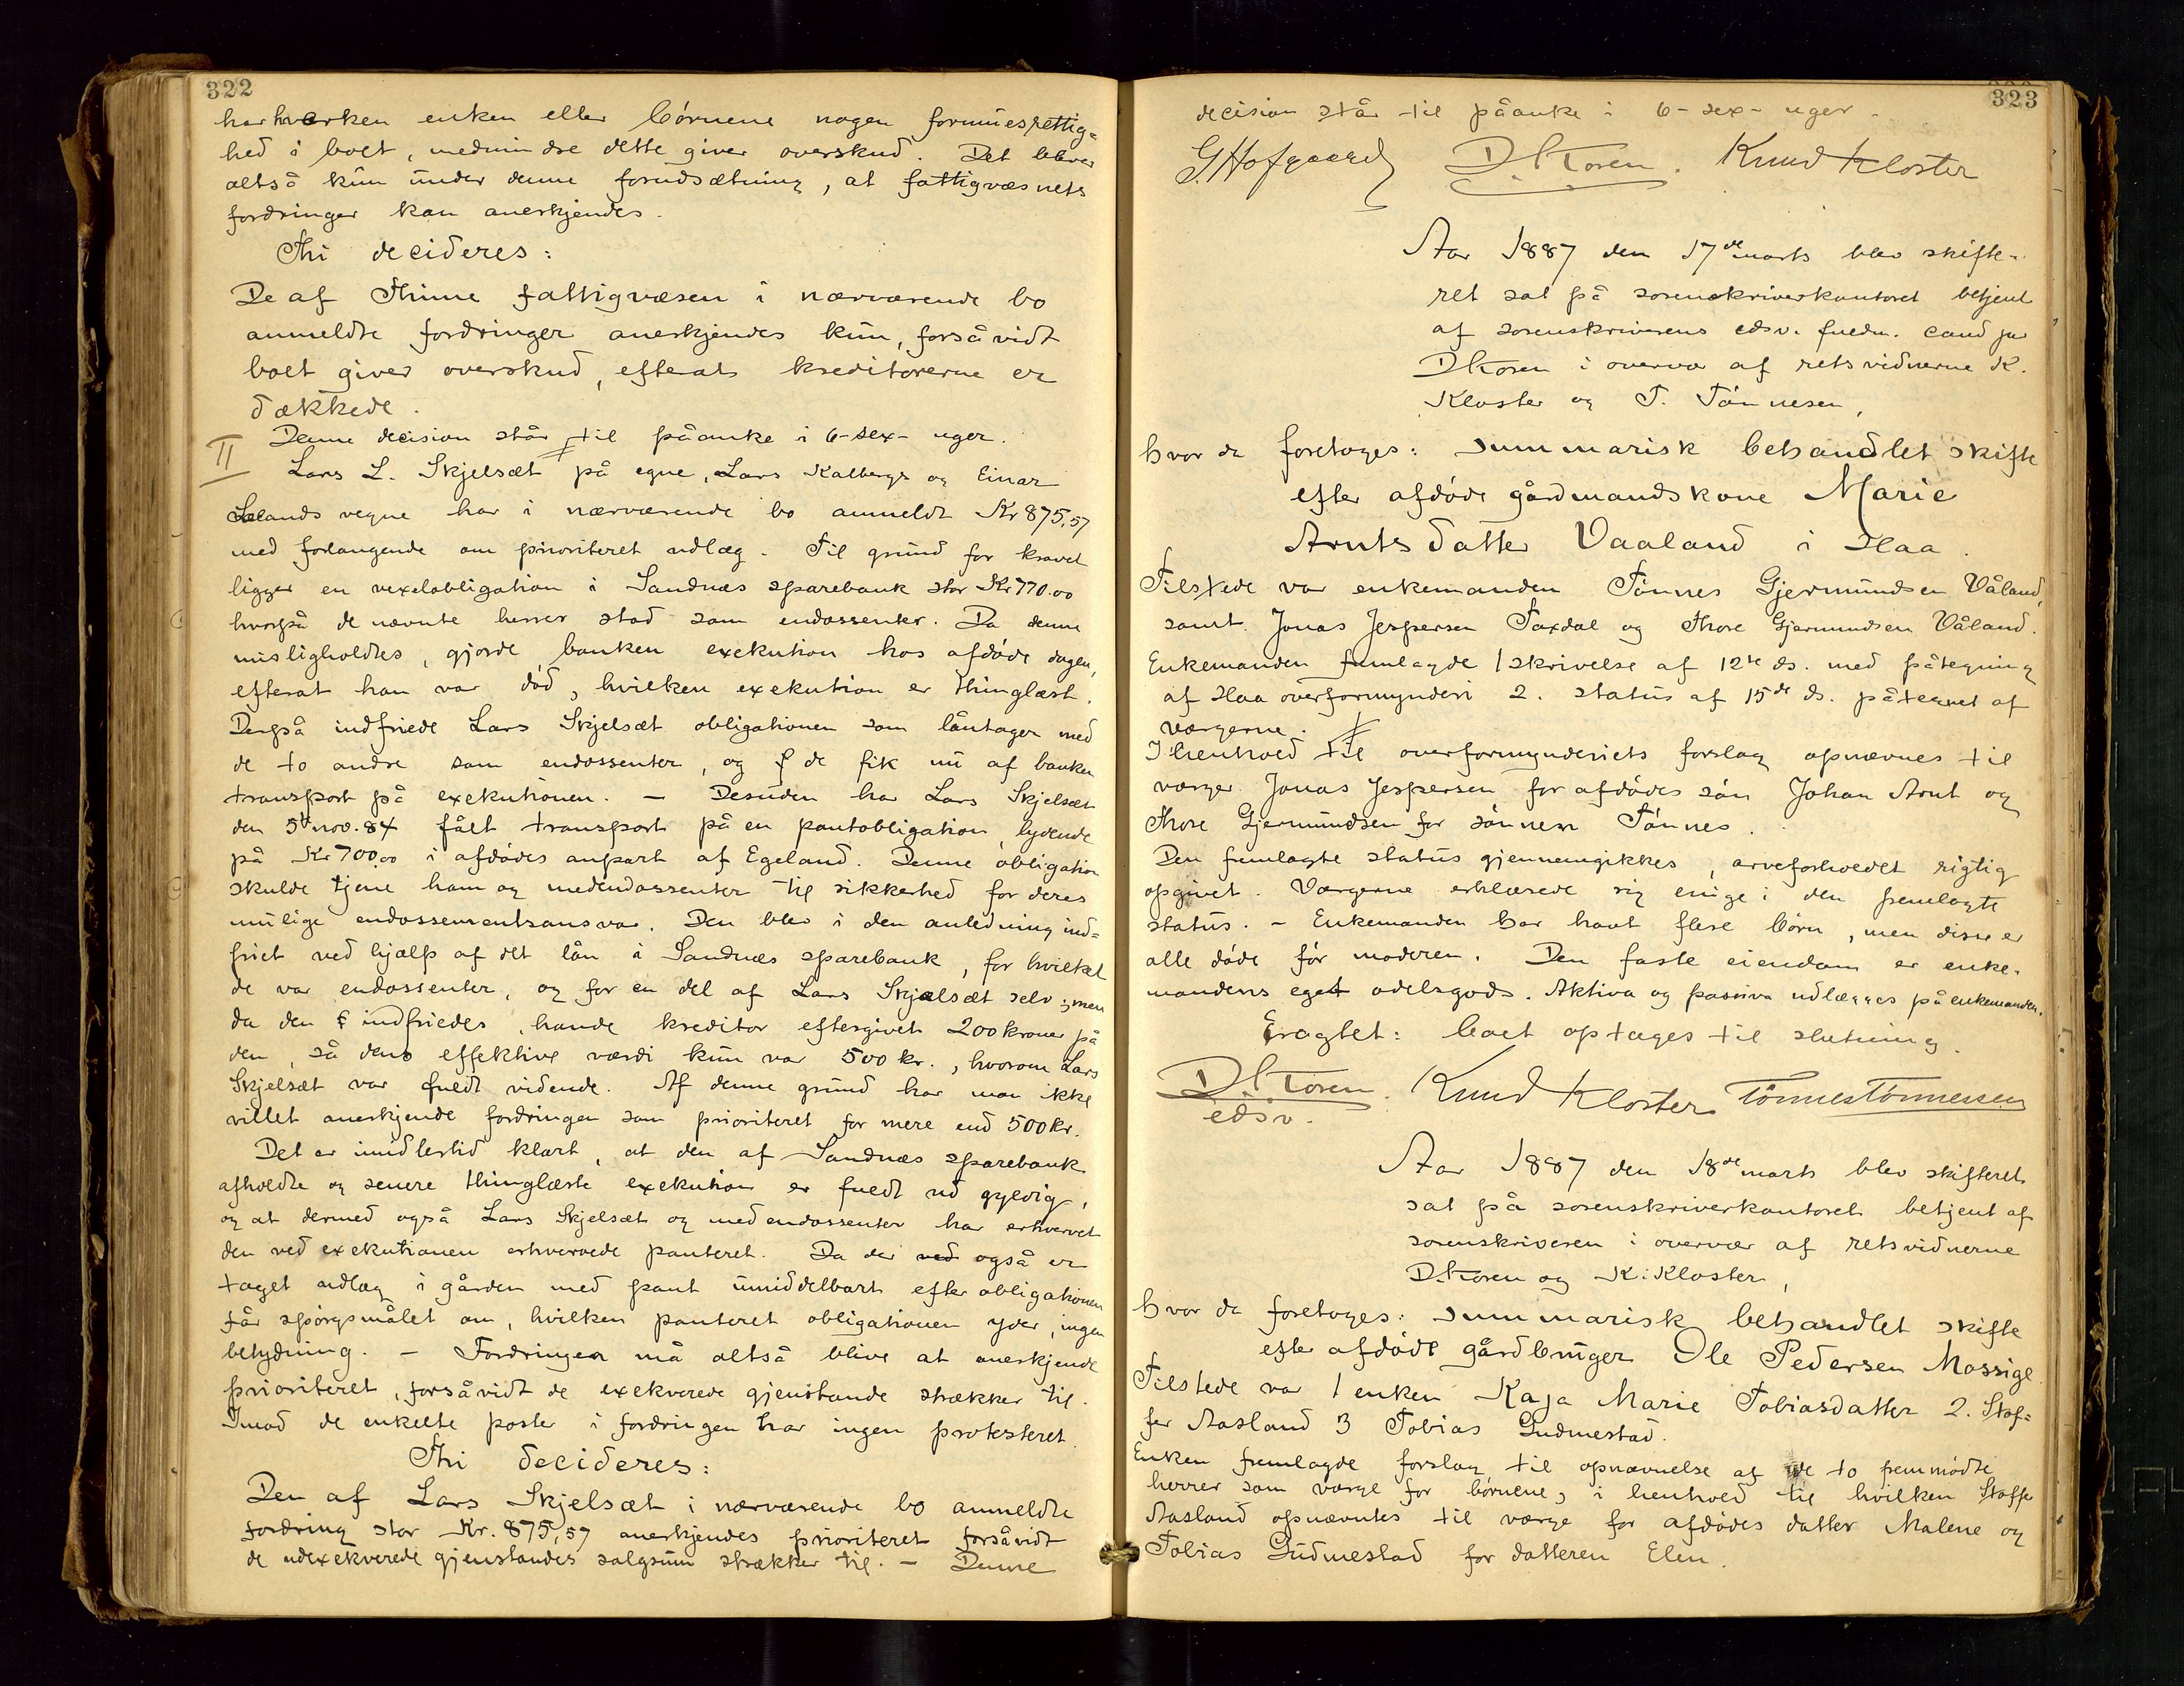 322
har hverken enken eller börnene nogen formuesrettig=
hed i boet, medmindre dette giver overskud. Det bliver
altså kun under denne forudsætning, at fattigvæsnets
fordringer kan anerkjendes.
Thi decideres:
De af Thime fattigvæsen i nærværende bo
anmeldte fordringer anerkjendes kun, forsåvidt
boet giver overskud, efterat kreditorerne er
dækkede.
Denne decision står til påanke i 6-sex- uger.
II Lars L. Skjelsæt på egne, Lars Kalbergs og Einar
Lelands vegne har i nærværende bo anmeldt Kr 875,57
med forlangende om prioriteret udlæg. Til grund for kravet
ligger en vexelobligation i Sandnæs sparebank stor Kr 770.00
hvorpå de nævnte herrer stod som endossenter. Da denne
misligholdtes, gjorde banken exekution hos afdøde dagen,
efterat han var död, hvilken exekution er thinglæst.
Derpå indfriede Lars Skjelsæt obligationen som låntager med
de to andre som endossenter, og de fik nu af banken
transport på exekutionen. — Desuden har Lars Skjelsæt
den 5te nov. 84 fått transport på en pantobligation, lydende
på Kr 700,00 i afdödes anpart af Egeland. Denne obligation
skulde tjene ham og medendossenter til sikkerhed for deres
mulige endossementsansvar. Den blev i den anledning ind=
friet ved hjælp af det lån i Sandnæs sparebank, for hvilket
de var endossenter, og for en del af Lars Skjelsæt selv; men
da den indfriedes, havde kreditor eftergivet 200 kroner på
den, så dens effektive værdi kun var 500 kr., hvorom Lars
Skjelsæt var fuldt vidende. Af denne grund har man ikke
villet anerkjende fordringen som prioriteret for mere end 500 kr.
Det er imidlertid klart, at den af Sandnæs sparebank
afholdte og senere thinglæste exekution er fuldt ud gyldig,
og at dermed også Lars Skjelsæt og medendossenter har erhvervet
den ved exekutionen erhvervede panteret. Da der ved også er
taget udlæg i gården med pant umiddelbart efter obligationen
får spörgsmålet om, hvilken panteret obligationen yder, ingen
betydning. — Fordringen må altså blive at anerkjende
prioriteret, forsåvidt de exekverede gjenstande strækker til.
Imod de enkelte poster i fordringen har ingen protesteret.
Thi decideres:
Den af Lars Skjelsæt i nærværende bo anmeldte
fordring stor Kr. 875,57 anerkjendes prioriteret forsåvidt
de udexekverede gjenstandes salgsum strækker til. — Denne
323
decision står til påanke i 6-sex- uger.
G Hofgaard D. Koren. Knud Kloster
Aar 1887 den 17de marts blev skifte-
ret sat på sorenskriverkontoret betjent
af sorenskriverens edsv. fuldm. cand jur
D Koren i overvær af retsvidnerne K.
Kloster og T. Tönnesen,
hvor da foretoges: summarisk behandlet skifte
efter afdöde gårdmandskone Marie
Arntsdatter Vaaland i Haa.
Tilstede var enkemanden Tönnes Gjermundsen Våland,
samt Jonas Jespersen Taxdal og Thore Gjermundsen Våland.
Enkemanden fremlagde 1 skrivelse af 12te ds. med påtegning
af Haa overformynderi 2. status af 15de ds. påtegnet af
værgerne.
I henhold til overformynderiets forslag opnævnes til
værger Jonas Jespersen for afdödes sön Johan Arnt og
Thore Gjermundsen for sönnen Tönnes.
Den fremlagte status gjennemgikkes, arveforholdet rigtig
opgivet. Værgerne erklærede sig enige i den fremlagte
status. — Enkemanden har havt flere börn, men disse er
alle döde för moderen. Den faste eiendom er enke-
mandens eget odelsgods. Aktiva og passiva udlægges på enkemanden.
Eragtet: boet optages til slutning.
D. Koren. Knud Kloster Tönnes Tönnessen
edsv.
Aar 1887 den 18de marts blev skifteret
sat på sorenskriverkontoret betjent af
sorenskriveren i overvær af retsvidnerne
D. Koren og K. Kloster,
hvor da foretoges: summarisk behandlet skifte
efter afdöde gårdbruger Ole Pedersen Mossige
Tilstede var 1 enken Kaja Marie Tobiasdatter 2. Stof=
fer Aasland 3 Tobias Gudmestad.
Enken fremlagde forslag til opnævnelse af de to fremmödte
herrer som værge for börnene, i henhold til hvilken Stoffer
Aasland opnævntes til værge for afdödes datter Malene og
Tobias Gudmestad for datteren Elen.